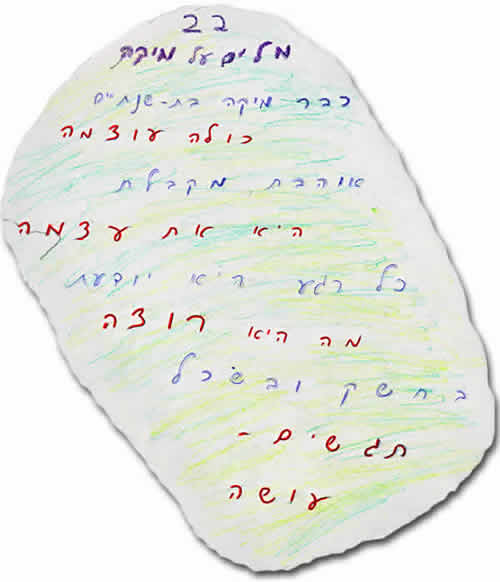 בב
מלים על מיקה
כבר מיקה בת-שנתיים
כולה עוצמה
אוהבת מקבלת
היא את עצמה
כל רגע היא יודעת
מה היא רוצה
בחשק ובשכל
תגשים -
עושה